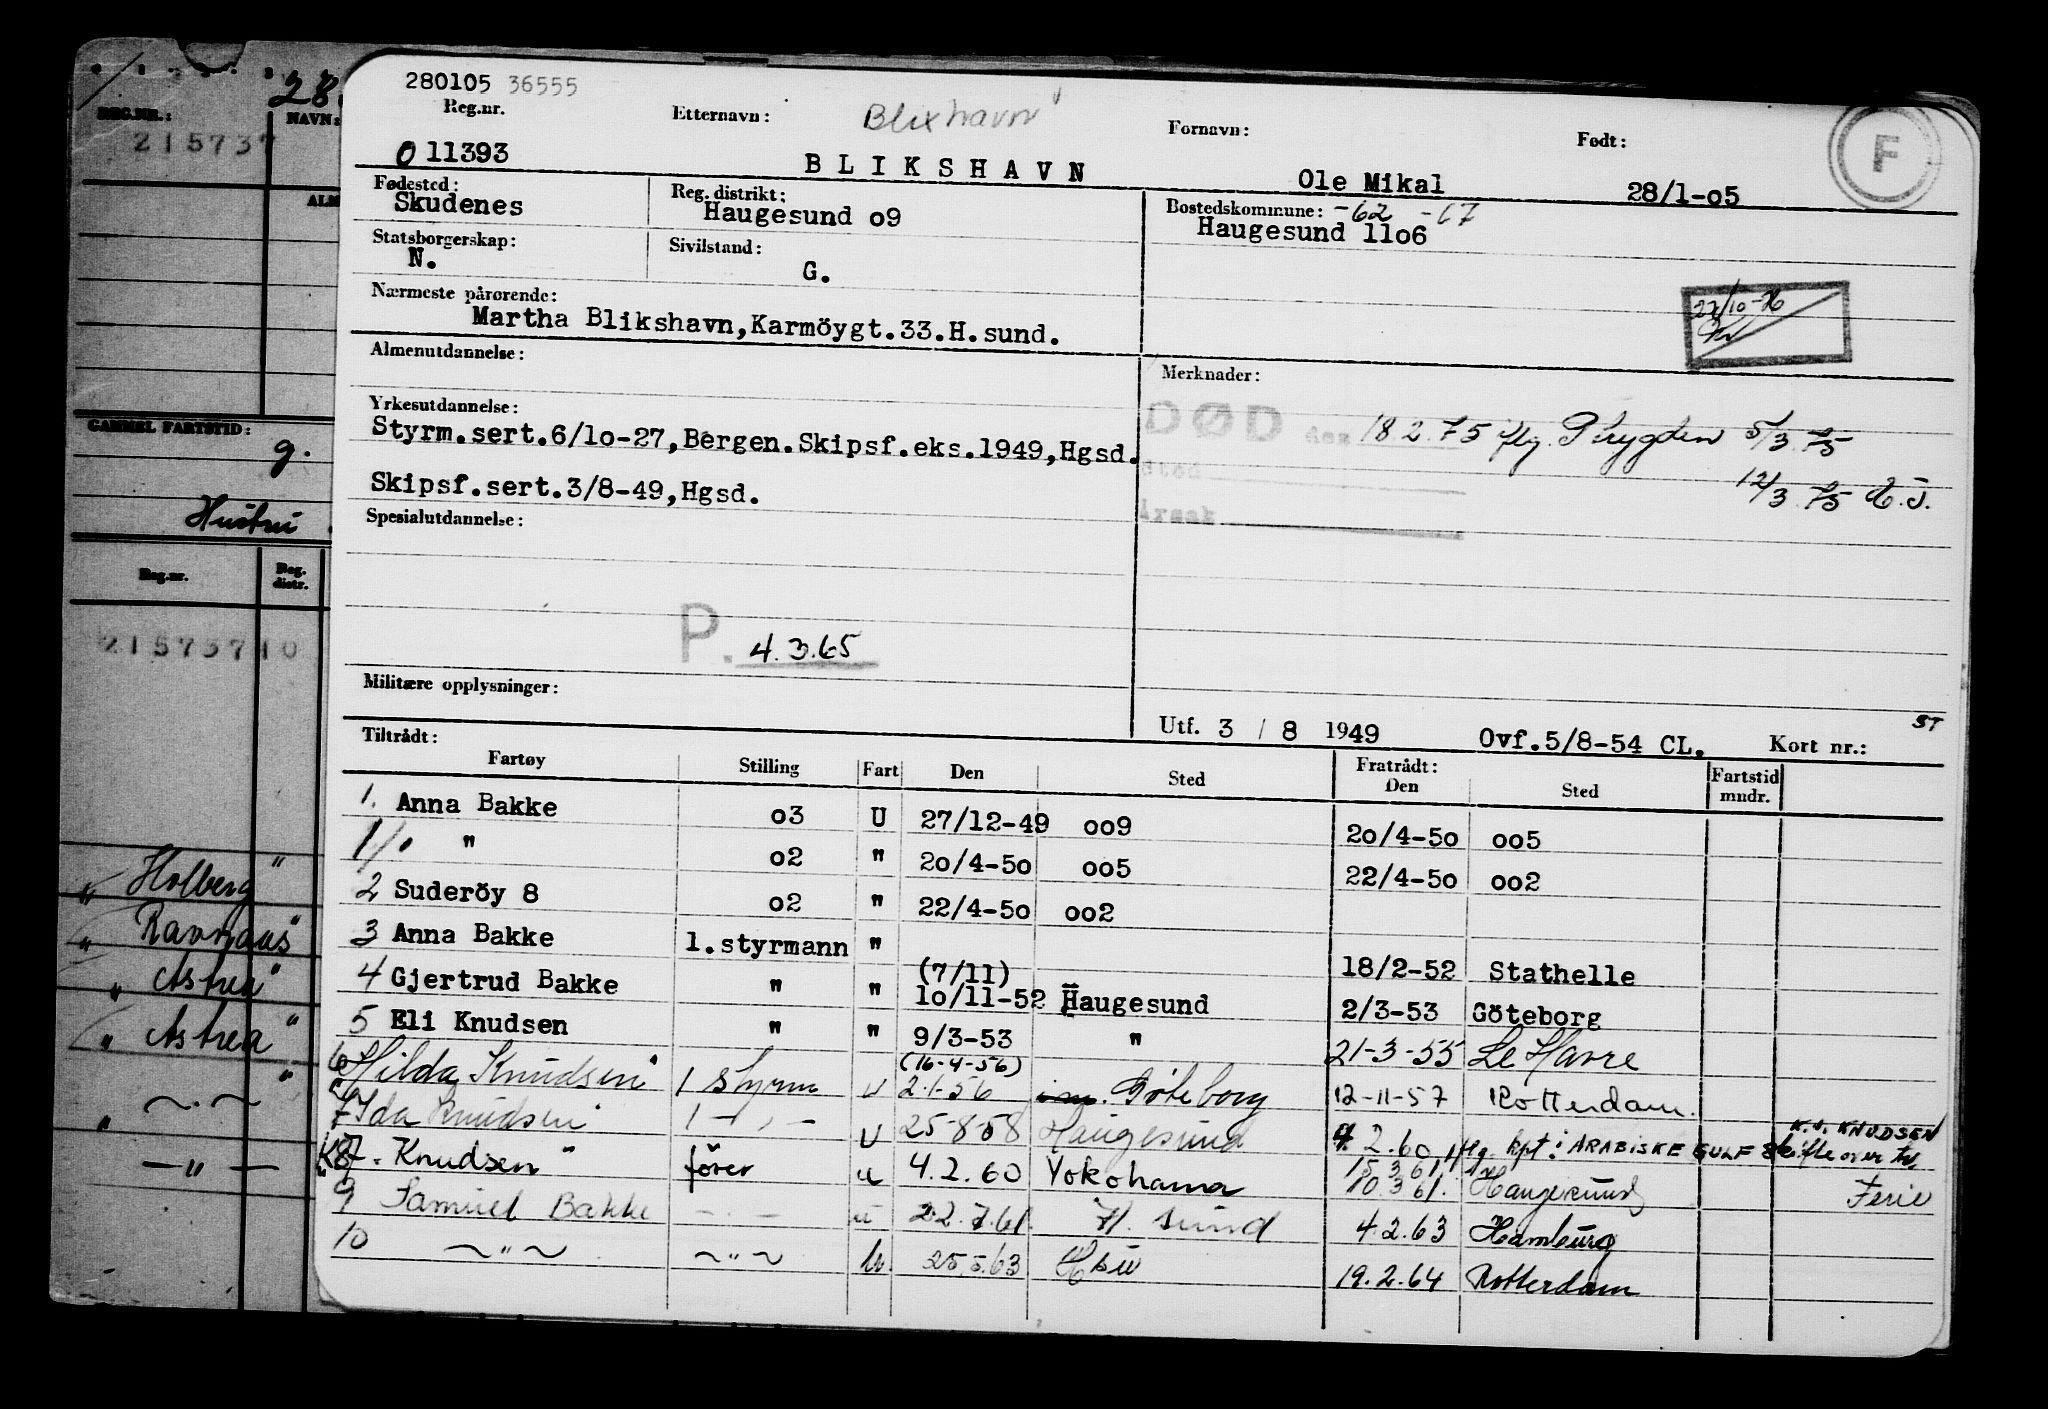 280105 36555
Reg.nr. Etternavn: Blixhavn Fornavn: Født: F
011393 BLIKSHAVN Ole Mikal 28/1-05
Fødested: Reg. distrikt: Bostedskommune: -62 -67
Skudenes Haugesund 09 Haugesund 1106
Statsborgerskap: Sivilstand:
N. G.
Nærmeste pårørende:
Martha Blikshavn, Karmöygt.33.H.sund.
27/10-76
Almenutdannelse: Merknader:
Yrkesutdannelse:
Styrm.sert.6/10-27, Bergen. Skipsf.eks.1949, Hgsd.
DØD den 18.2.75 flg. P.trygden 5/3.75
Sted
12/3.75
Skipsf.sert.3/8-49, Hgsd.
Årsak
Spesialutdannelse:
P. 4.3.65
Militære opplysninger:
Utf. 3 / 8 1949 Ovf.5/8-54 CL. Kort nr.: ST
Tiltrådt: Fratrådt:
Fartøy Stilling Fart Den Sted Den Sted Fartstid mndr.
1. Anna Bakke 03 U 27/12-49 009 20/4-50 005
1/0 " 02 " 20/4-50 005 22/4-50 002
2 Suderöy 8 02 " 22/4-50 002
3 Anna Bakke 1.styrmann " 18/2-52 Stathelle
4 Gjertrud Bakke " " (7/11) 10/11-52 Haugesund 2/3-53 Göteborg
5 Eli Knudsen " " 9/3-53 " 21-3-55 Le Havre
6 "Hilda Knudsen" 1 styrm u (16-4-56) 2-1-56 Göteborg 12-11-57 Rotterdam.
7 "Ida Knudsen" 1 -"- U 25-8-58 Haugesund 4.2.60 flg. kpt i ARABISKE GULF Skifte over til K.J. KNUDSEN
8 "K.J. Knudsen" fører u 4.2.60 Yokohama 15.3.61 10.3.61. Haugesund Ferie
9 Samuel Bakke -"- u 22.7.61. H.sund 4.2.63 Hamburg
10 -"- -"- u. 25.5.63 Hsu 19.2.64 Rotterdam
REG.NR.: NAVN:
215737
GAMMEL FARTSTID:
g.
Hustru
Reg.nr. Reg. distr.
21573710
"Holberg"
"Ravnaas"
"Astrea"
"Astrea"
" -"- "
" -"-